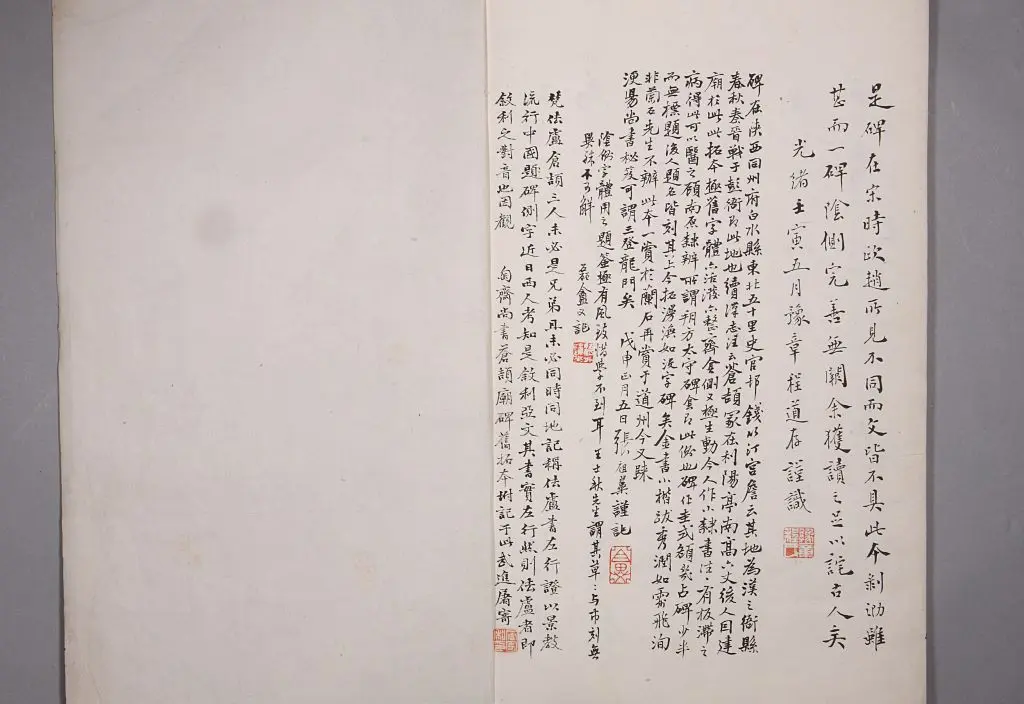 是碑在宋時歐趙所見不同而文皆不具此本剝泐雖
甚而一碑陰側完善無闕余獲讀之足以詫古人矣
光緒壬寅五月豫章程道存謹識
碑在陝西同州府白水縣東北五十里史官邨錢少詹云其地為漢之衙縣
春秋秦晉戰于彭衙即此地也續漢志注云蒼頡冢在利陽亭南高六丈後人因建
廟於此此拓本極舊字體六活潑六整齊金側又極生動今人作小隸書往往有板滯之
病得此可以醫之顧南原隸辨所謂朔方太守碑即此份也碑作圭式額占碑少半
而無標題後人題名皆刻其上今拓漫漶如沒字碑矣金書小楷跋秀潤如雲飛洵
非蘭石先生不辦此本一賞於蘭石再賞于道州今又歸
浭陽尚書秘笈可謂三登龍門矣 戊申正月五日張祖翼謹記
陰側字體用之題簽極有風致惜學不到耳王士秋先生謂其草草與市刻無
異殊不可解 磊盦又記
梵佉盧倉頡三人未必是兄弟且未必同時同地記稱佉盧書左行證以景教
流行中國題碑側字近日西人考知是敘利亞文其書實左行然則佉盧者即
敘利之對音也因觀
匋齋尚書蒼頡廟碑舊拓本坿記于此武進屠寄